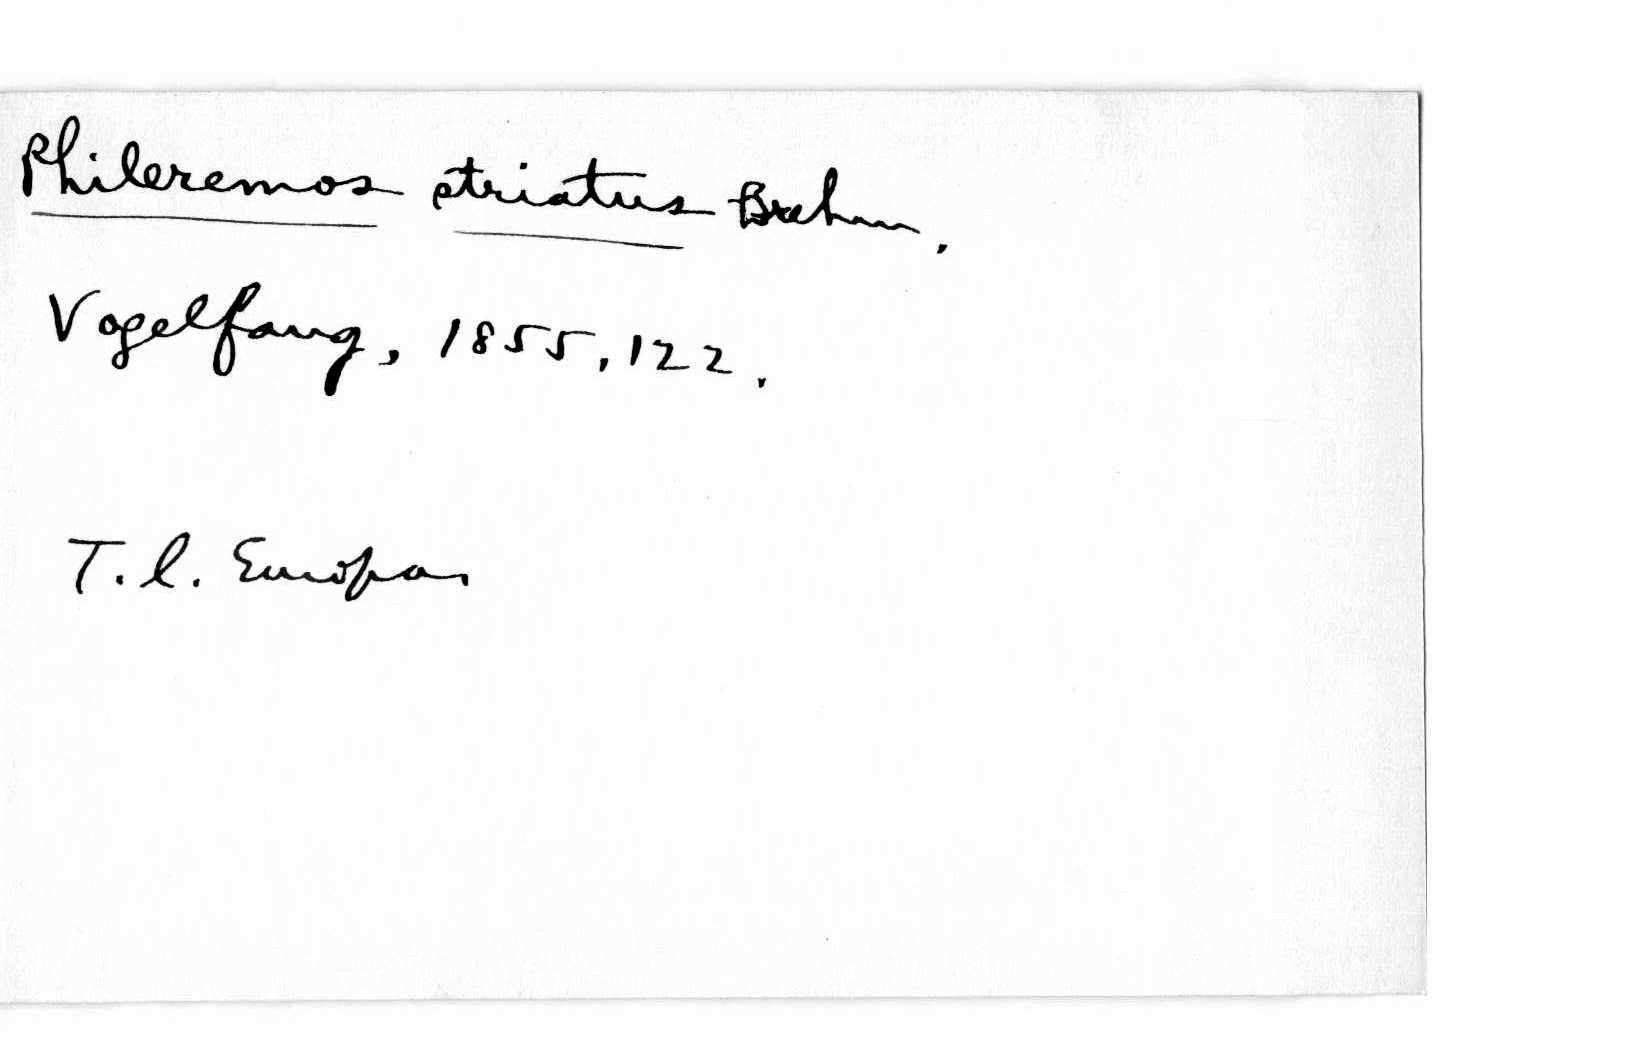 Phileremos striatus Brehm.
Vogelfang, 1855, 122.
T.l. Europa